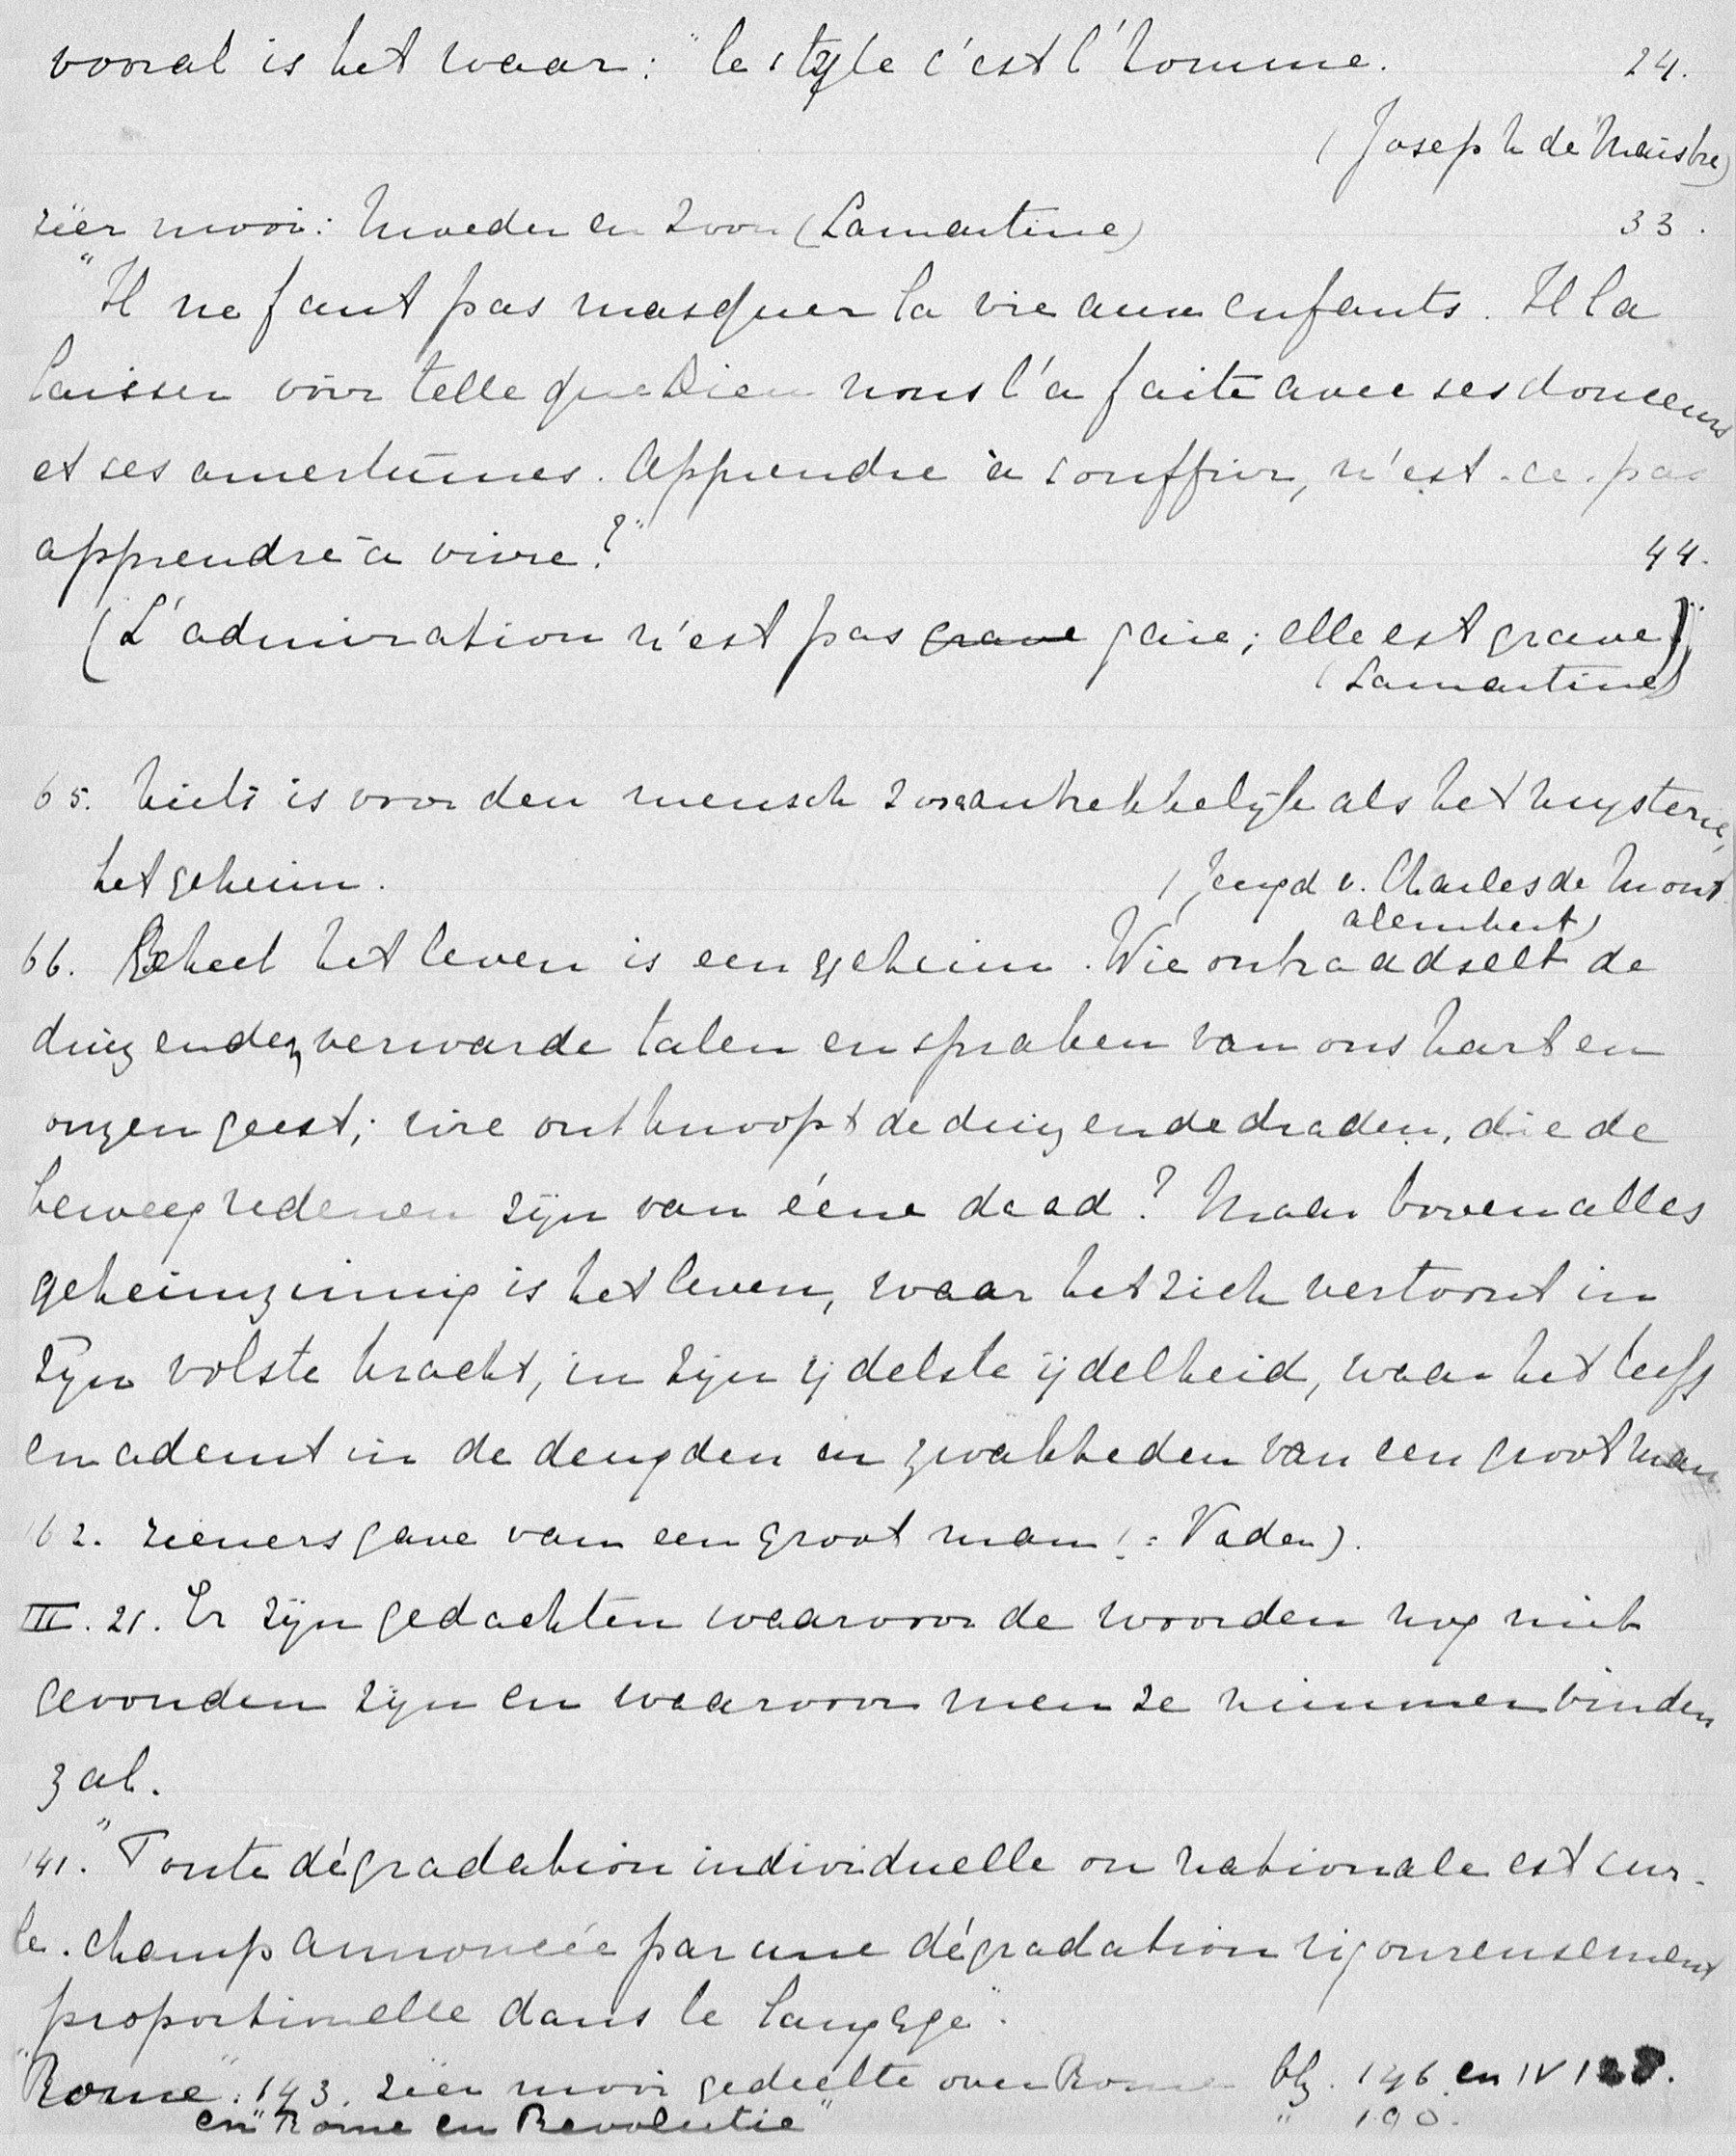 vooral is het waar: "le style c'est l'homme. 24.
(Joseph de Maistre)
zéér mooi: Moeder en Zoon (Lamartine) 33.
"Il ne faut pas masquer la vie aux enfants. Il la
laisser voir telle que Dieu nous l'a faite avec ses douceurs
et ses amertumes. Apprendre à souffrir, n'est-ce-pas
apprendre à vivre?" 44.
(L'admiration n'est pas grave gaie; elle est grave)
(Lamartine)
65. Niets is voor den mensch zoo aantrekkelijk als het mysterie,
het geheim. (Jeugd v. Charles de Mont
alembert)
66. Geheel het leven is een geheim. Wie ontraadselt de
duizenden verwarde talen en spraken van ons hart en
onzen geest; wie ontknoopt de duizende draden, die de
beweegredenen zijn van ééne daad? Maar boven alles
geheimzinnig is het leven, waar het zich vertoont in
zijn volste kracht, in zijn ijdelste ijdelheid, waar het leeft
en ademt in de deugden en zwakheden van een groot man
162. zienersgave van een groot man (= Vader).
III. 21. Er zijn gedachten waarvoor de woorden nog niet
gevonden zijn en waarvoor men ze nimmer vinden
zal.
141. "Toute dégradation individuelle ou nationale est sur-
le-champ annoncée par une dégradation rigoureusement
proportionelle dans le langage".
"Rome". 143. zéér mooi gedeelte over Rome blz. 146 en IV
en "Rome en Revolutie" " 190.